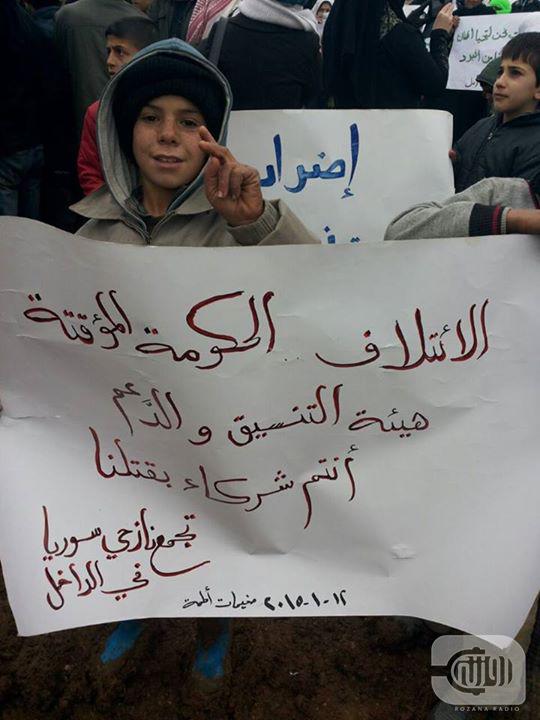 إضراب
الائتلاف .. الحكومة المؤقتة
هيئة التنسيق و الدعم
أنتم شركاء بقتلنا
تجمع نازحي سوريا
في الداخل
مخيمات أطمة ١٢-١-٢٠١٥
ROZANA RADIO